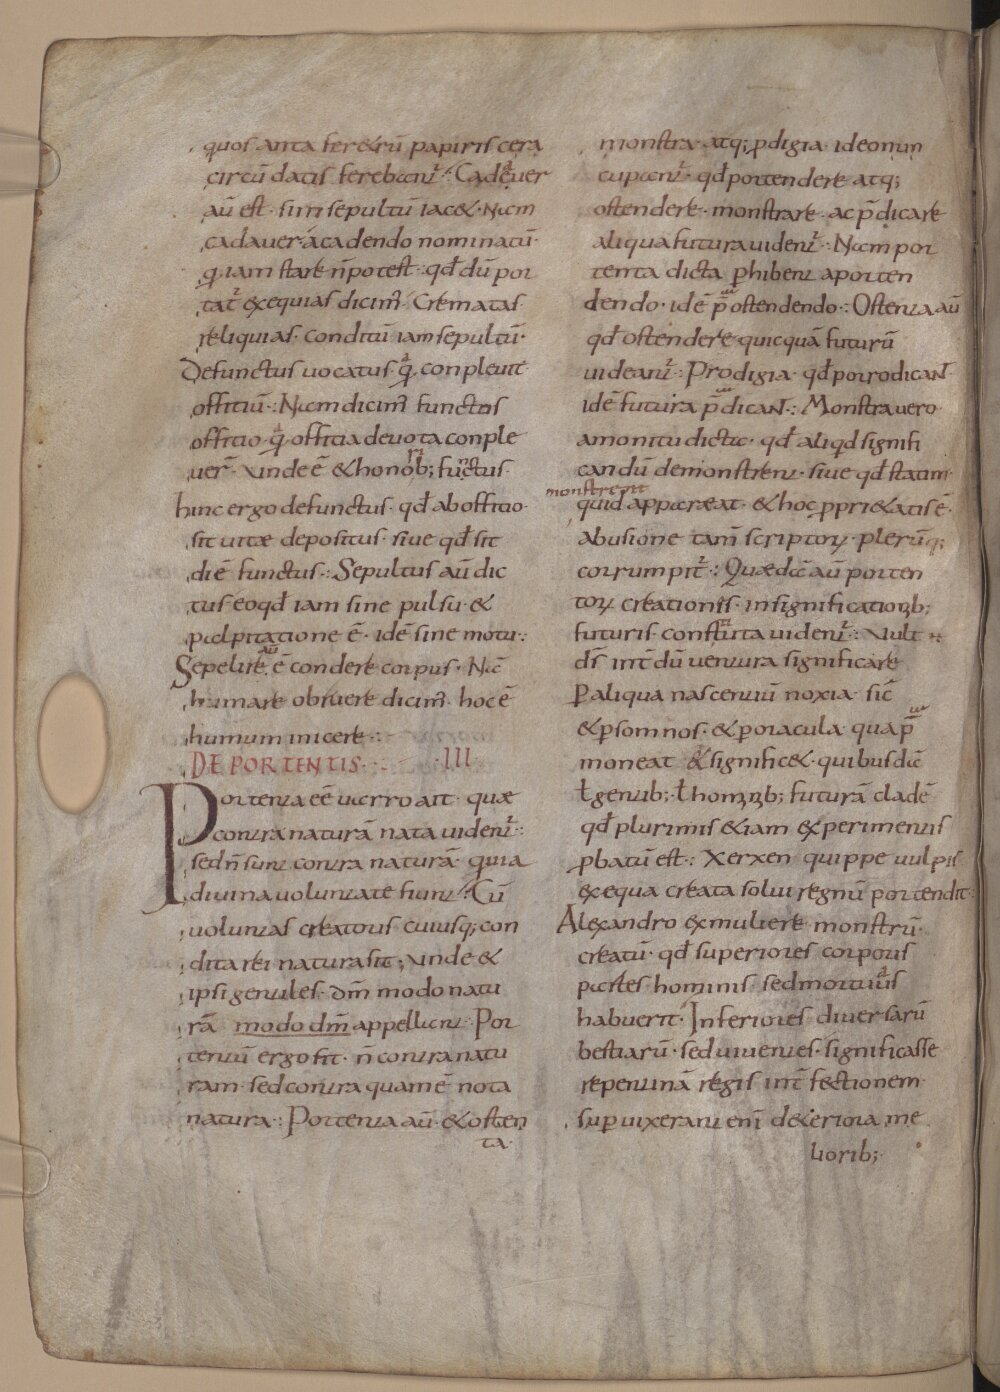 quos anta fer&rū papiris cera
circū datis ferebant᷑ Cadauer
aū est · si insepultū iac& · Nam
cadauer · a cadendo nominatū ·
q̄ iam stare n̄ potest · qđ dū por
tat᷑ exequias dicim᷑ Crematas
reliquias · conditū iam sepultū ·
Defunctus uocatus q̄ conpleuit
offitiū · Nam dicim᷑ functos
offitio · q̄ offitia deuota conple
uer̄ · unde ē & honorib; functus ·
hinc ergo defunctus · qđ ab offitio ·
sit uitæ depositus · siue qđ sit
diē functus · Sepultus aū dic
tus eo qđ iam sine pulsu · &
palpitatione ē · idē sine motu :
Sepelire aū ē condere corpus · Nā
humare obruere dicim᷑ · hoc ē
humum inicere ·:
DE PORTENTIS · III
Portenta eē uarro ait · quæ
contra naturā nata uident᷑ ·:
sed n̄ sunt contra naturā · quia
diuina uoluntate fiunt · Cū
uoluntas creatoris cuiusq; con
ditæ rei natura sit ; unde &
ipsi gentiles · dm̄ modo natu
rā modo dm̄ appellant · Por
tentū ergo fit · n̄ contra natu
ram · sed contra quam ē nota
natura · Portenta aū · & osten
ta ·
monstra · atq; pdigia · ideo nun
cupant᷑ · qđ portendere atq;
ostendere · monstrare · ac p̄dicare
aliqua futura uident᷑ · Nam por
tenta dicta phibent a porten
dendo · idē p̄ostendendo · Ostenta aū
qđ ostendere quicquā futurū
uideant᷑ · Prodigia · qđ porro dicant
idē futura p̄dicant · Monstra uero
a monitu dicta · qđ aliqđ signifi
candū demonstrent · siue qđ statim
monstrent
quid appareat · & hoc ppri&atis ē ·
abusione tam̄ scriptoꝝ · plerūq;
corrumpit᷑ · Quædā aū porten
toꝝ creationis · in significationib;
futuris · constituta uident᷑ · Vult
ds̄ int̄dū uentura significare
p aliqua nascentiū noxia · sic̄
& p somnos · & p oracula · qua p̄
moneat & signific& · quibusdā
ł gentib; ł hominib; futurā cladē
qđ plurimis &iam experimentis
pbatū est · Xerxen quippe uulpis
ex equa creata solui regnū portendit
Alexandro ex muliere monstrū ·
creatū · qđ superiores corporis
partes hominis · sed mortuas
habuerit · Inferiores diuersarū
bestiarū · sed uiuentes · significasse
repentinā regis int̄fectionem
sup uixerant enī d&eriora me
liorib;